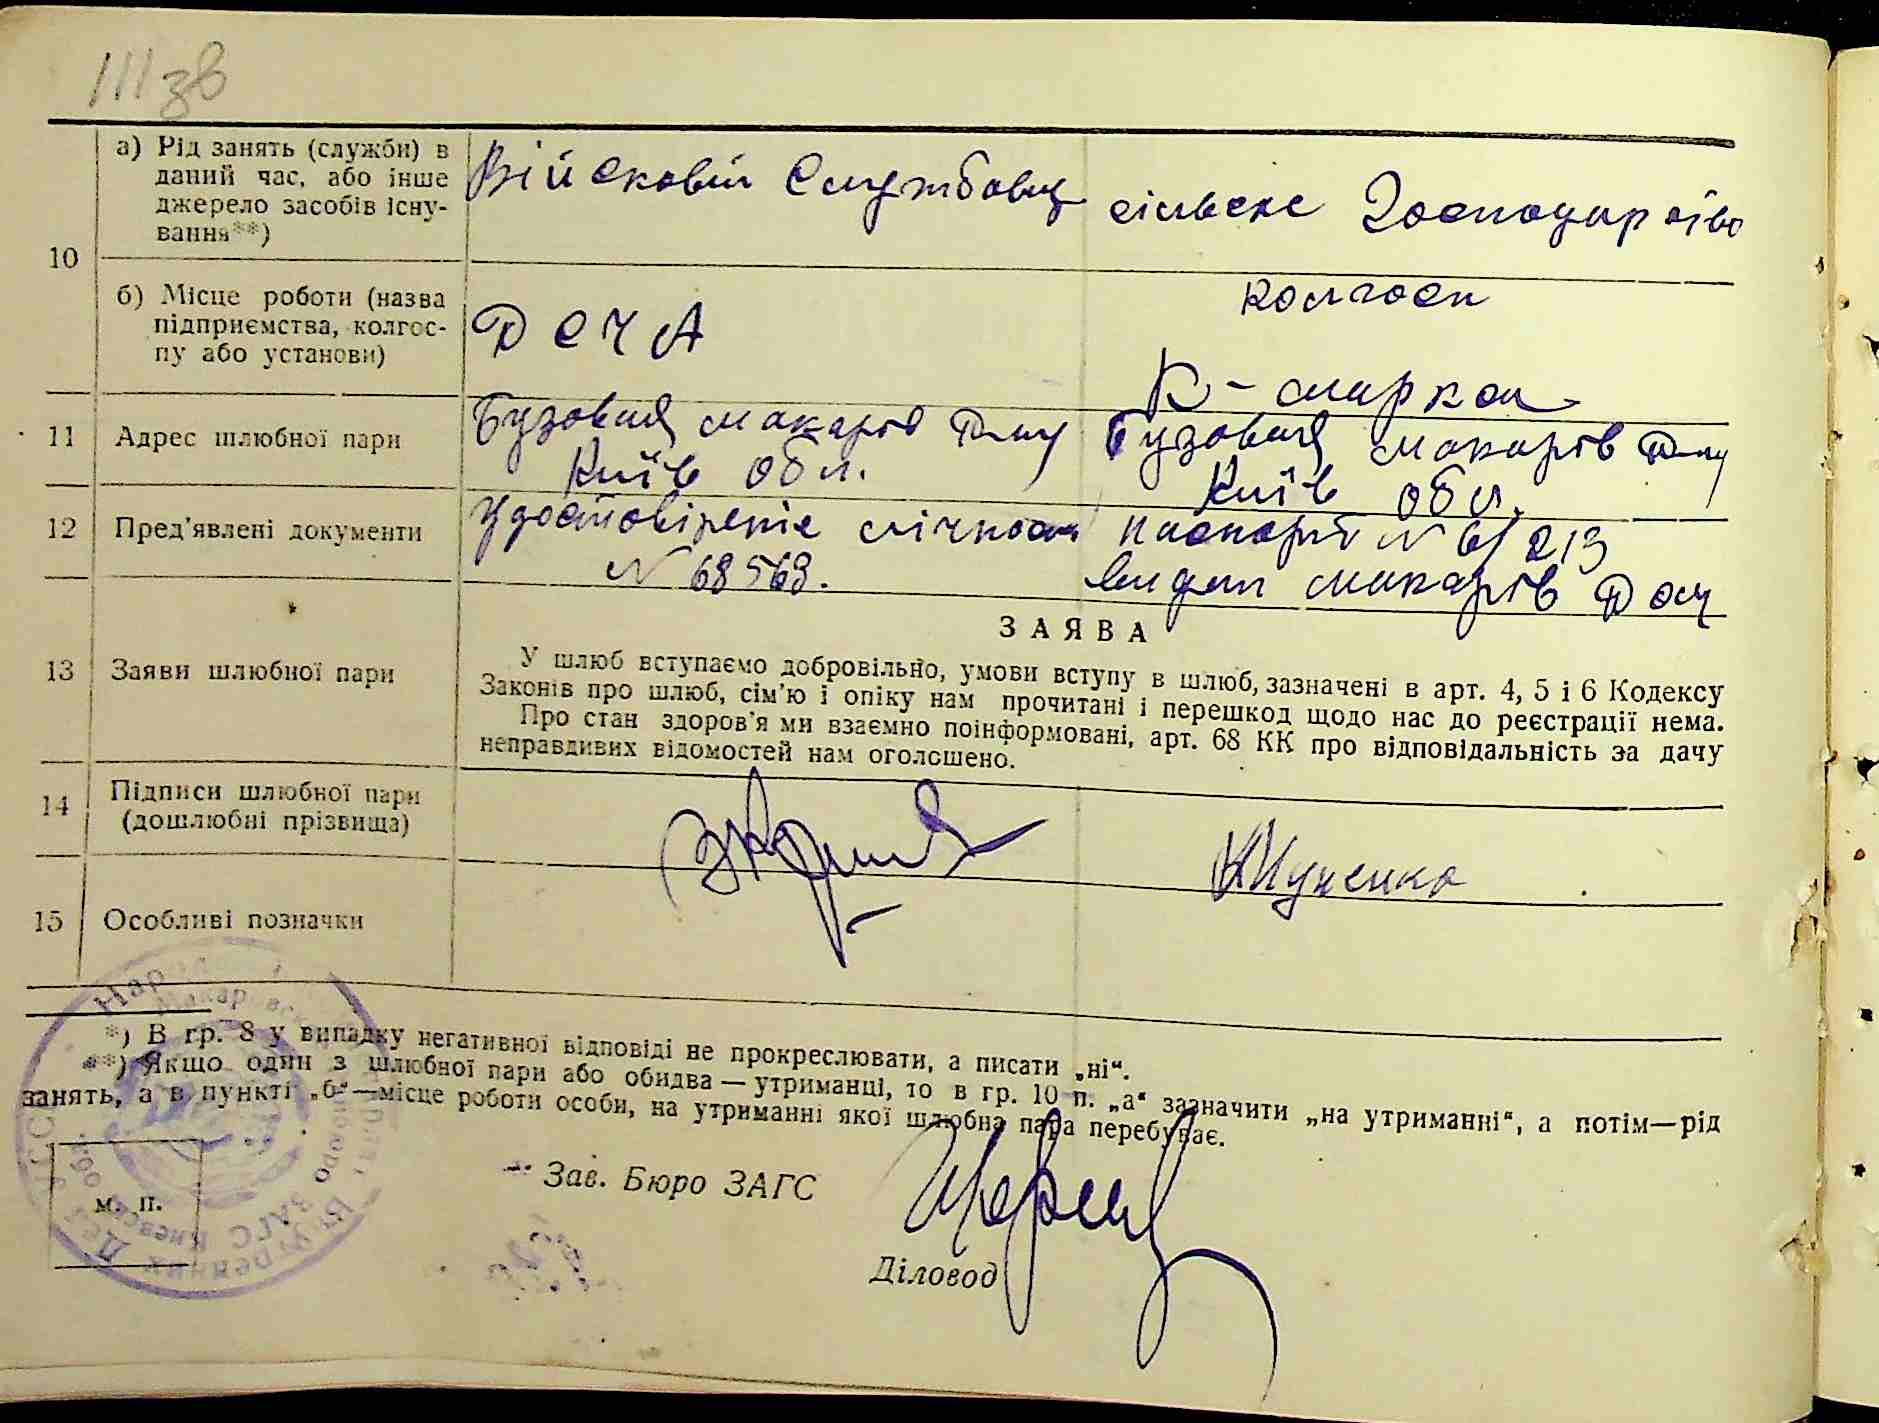 III зв
а) Рід занять (служби) в
даний час, або інше
джерело засобів існу-
вання**)
Військовий Службовець
сільське Господарство
10
б) Місце роботи (назва
підприємства, колгос-
пу або установи)
колгосп
К-Маркса
11
Адрес шлюбної пари
Бузовая Макарів
Київ обл.
Бузовая Макарів
Київ обл.
12
Пред'явлені документи
№ 68568.
паспорт №
видан Макарів
ЗАЯВА
13
Заяви шлюбної пари
У шлюб вступаємо добровільно, умови вступу в шлюб, зазначені в арт. 4, 5 і 6 Кодексу
Законів про шлюб, сім'ю і опіку нам прочитані і перешкод щодо нас до реєстрації нема.
Про стан здоров'я ми взаємно поінформовані, арт. 68 КК про відповідальність за дачу
неправдивих відомостей нам оголошено.
14
Підписи шлюбної пари
(дошлюбні прізвища)
15
Особливі позначки
*) В гр. 8 у випадку негативної відповіді не прокреслювати, а писати „ні“.
**) Якщо один з шлюбної пари або обидва — утриманці, то в гр. 10 п. „а“ зазначити „на утриманні“, а потім—рід
занять, а в пункті „б“—місце роботи особи, на утриманні якої шлюбна пара перебуває.
Зав. Бюро ЗАГС
м. п.
Діловод